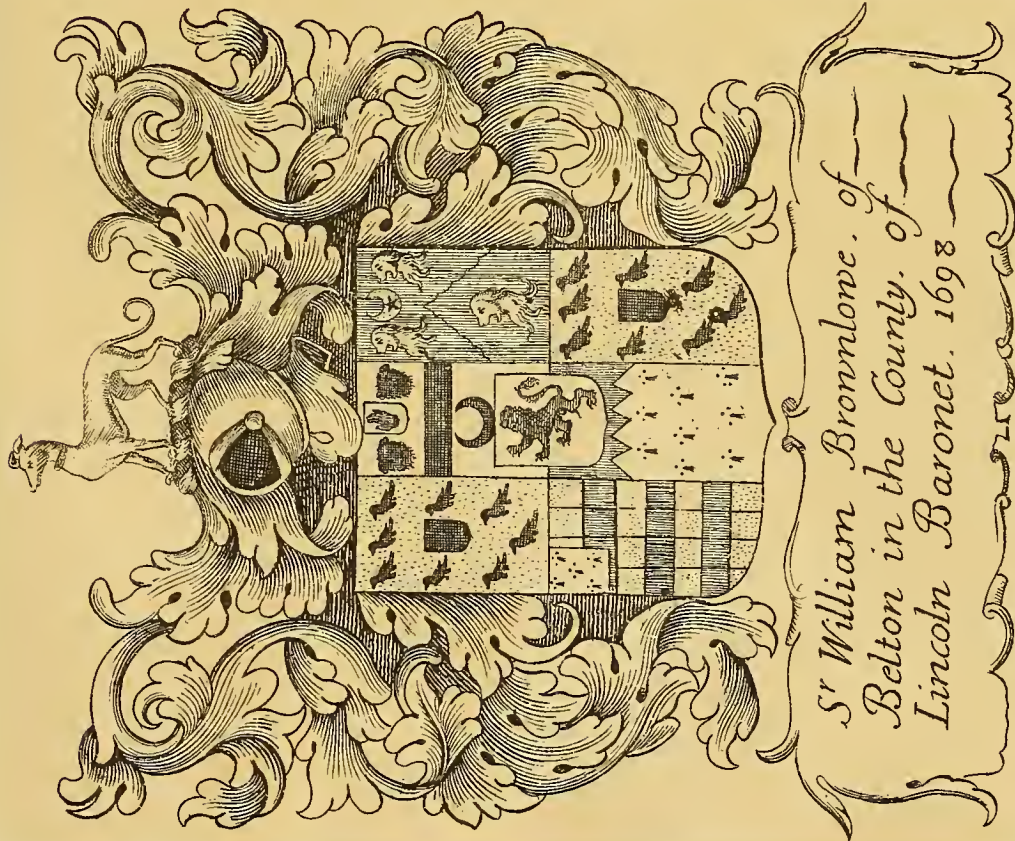 Sr William Brownlowe. of
Belton in the County. of
Lincoln Baronet. 1698